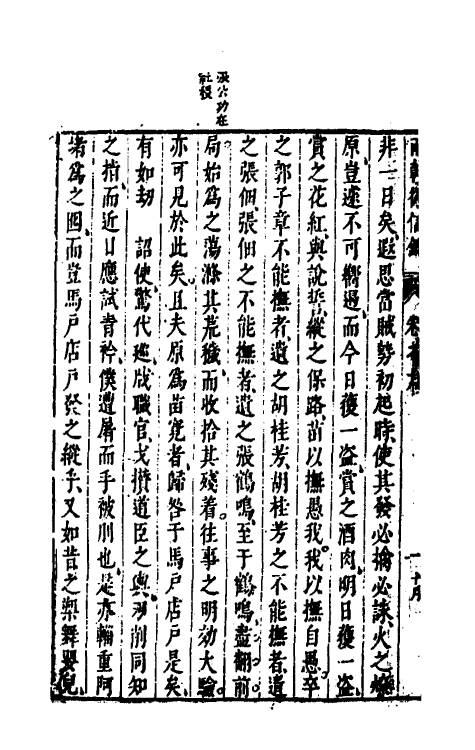 張公功在
社稷
非一日矣遐思當賊勢初起時使其發必擒必誅火之燎
原豈遽不可嚮邇而今日獲一盜賞之酒肉明日獲一盜
賞之花紅與說誓縱之保路苗以撫愚我我以撫自愚卒
之郭子章不能撫者遺之胡桂芳胡桂芳之不能撫者遺
之張佃張佃之不能撫者遺之張鶴鳴至于鶴鳴盡翻前
局始爲之蕩滌其荒穢而收拾其殘着往事之明効大驗
亦可見於此矣且夫原爲苗寃者歸咎于馬戶店戶是矣
有如劫 詔使驚代巡戕職官戈攢道臣之輿刃削同知
之指而近日應試青衿僕遭屠而手被刖也是亦輜重阿
堵爲之囮而豈馬戶店戶發之縱乎又如昔之槊舞嬰兒